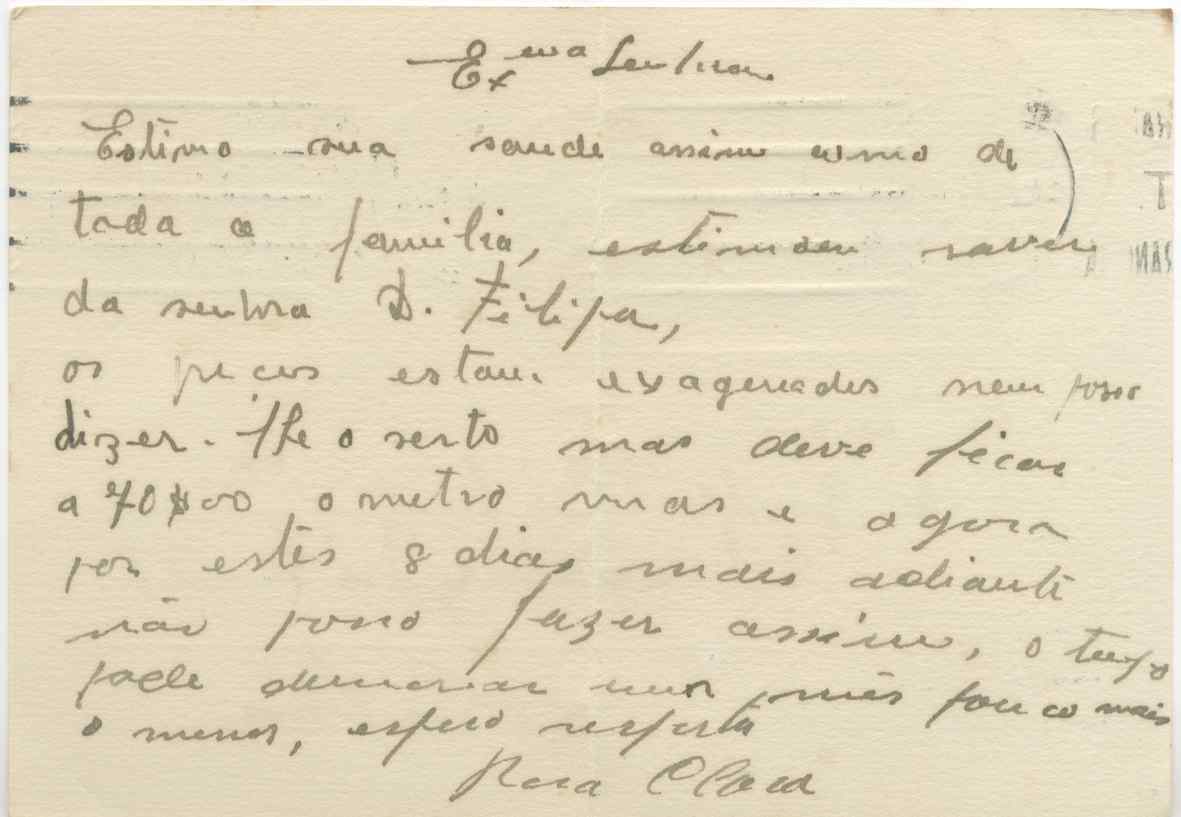 Exma Senhora
Estimo sua saude assim como de
toda a familia, estimoeu saver
da senhora D. Filipa,
os precos estam exagerados nem poso
dizer-lhe o serto mas deve ficar
a 70$00 o metro mas e agora
por estes 8 dias mais adiante
não posso fazer assim, o tempo
pode demorar um mês pouco mais
o menos, espero resposta
Rosa